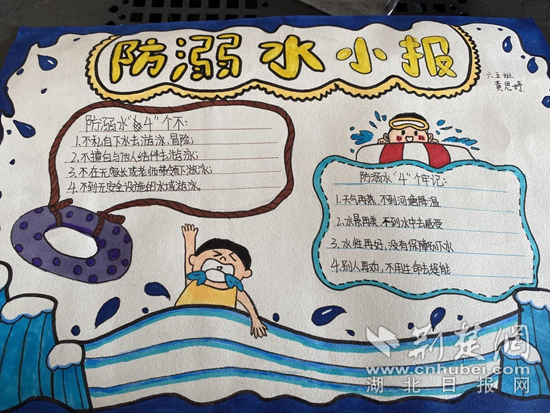 防溺水小报
六五班
黄思婷
防溺水“4”个不:
1.不私自下水去游泳,冒险;
2.不擅自与他人结伴去游泳;
3.不在无家长或老师带领下游泳;
4.不到无安全设施的水域游泳.
防溺水“4”个牢记:
1.天气再热,不到河塘降温
2.水景再美,不到水中去感受
3.水性再好,没有保障勿下水
4.别人再劝,不用生命去逞能
荆楚网
www.cnhubei.com
湖北日报网